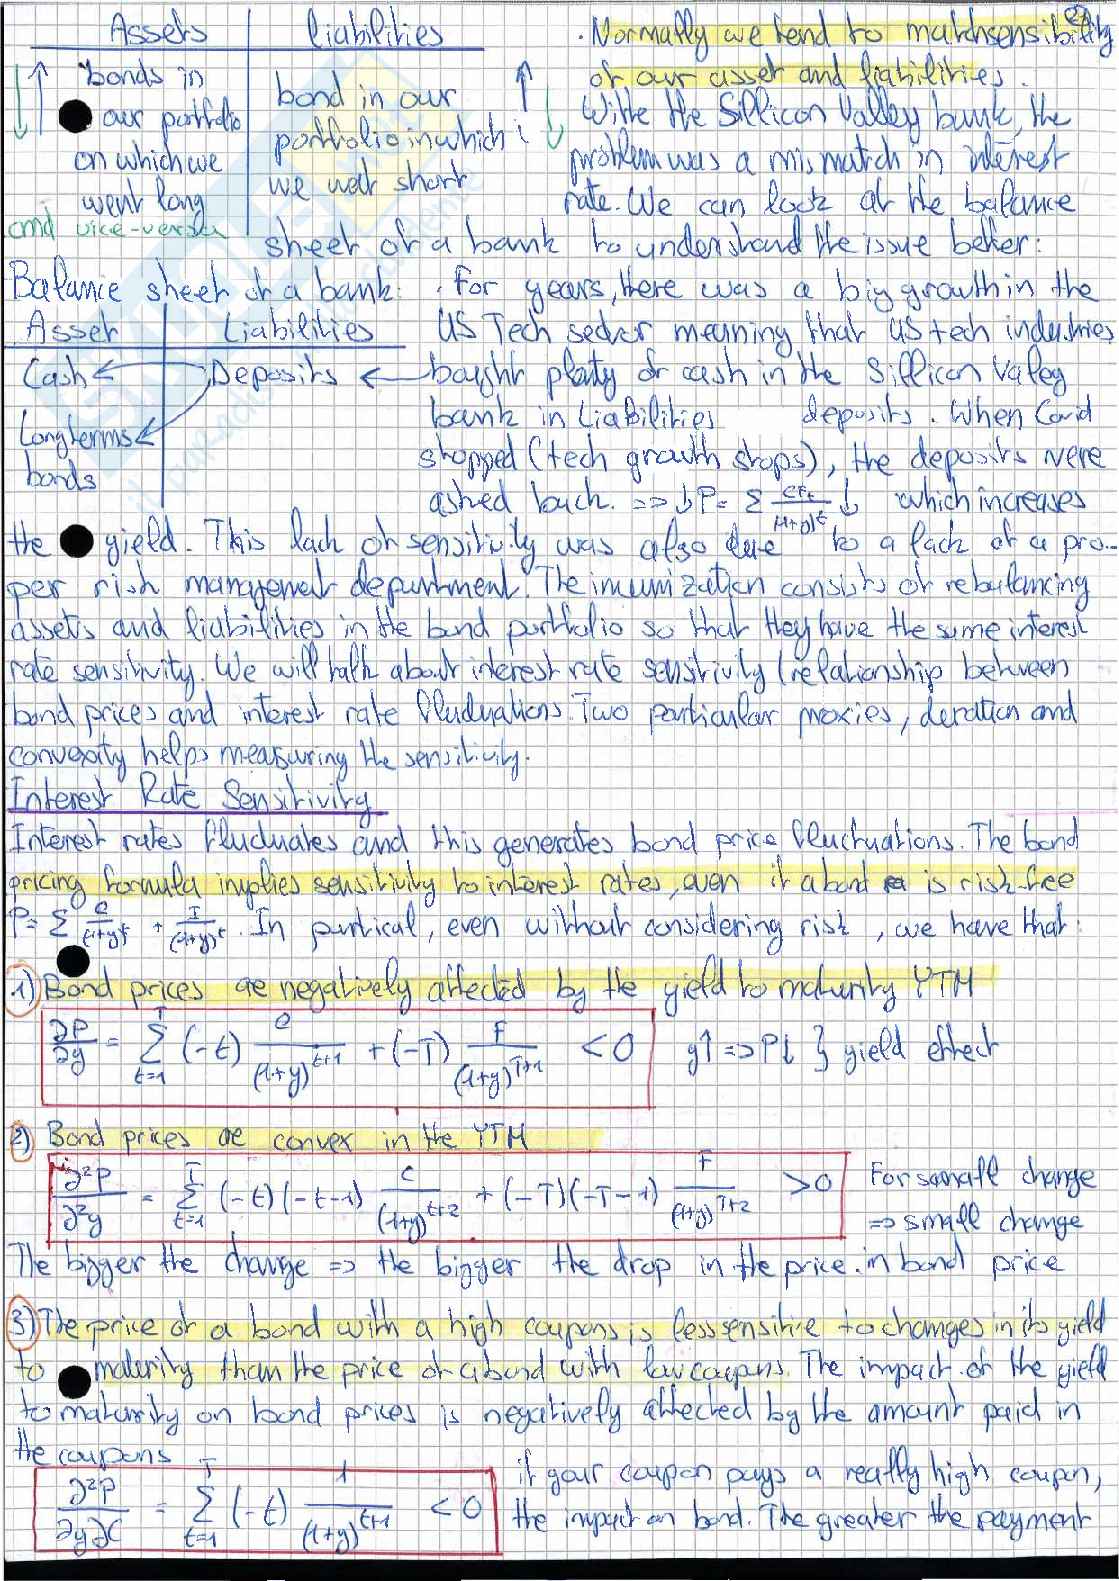 Assets | Liabilities
bonds in
our portfolio
on which we
went long
and vice-versa
bond in our
portfolio in which
we went short
. Normally we tend to matchsensibility
of our asset and liabilities.
Withe the Sillicon Valley bank, the
problem was a mismatch in interest
rate. We can look at the balance
sheet of a bank to understand the issue better:
Balance sheet of a bank:
Asset | Liabilities
Cash Deposits
Long terms
bonds
. For years, there was a big growth in the
US Tech sector meaning that US tech industries
bought plenty of cash in the Sillicon Valley
bank in Liabilities deposits. When Covid
stopped (tech growth stops), the deposits were
asked back. => ↓P= Σ CFt/(1+y)^t ↓ which increases
the yield. This lack of sensitivity was also due to a lack of a pro-
per risk management department. The imumization consists of rebalancing
assets and liabilities in the bond portfolio so that they have the same interest
rate sensitivity. We will talk about interest rate sensitivity (relationship between
bond prices and interest rate fluctuations. Two particular proxies, duration and
convexity helps measuring the sensitivity.
Interest Rate Sensitivity
Interest rates fluctuates and this generates bond price fluctuations. The bond
pricing formula implies sensitivity to interest rates, even if a bond is risk-free
P= Σ C/(1+y)^t + F/(1+y)^t. In partical, even without considering risk, we have that:
1) Bond prices are negatively affected by the yield to maturity YTM
∂P/∂y = Σ_{t=1}^{T} (-t) C/(1+y)^{t+1} + (-T) F/(1+y)^{T+1} < 0 y↑ => P↓ } yield effect
2) Bond prices are convex in the YTM
∂²P/∂²y = Σ_{t=1}^{T} (-t)(-t-1) C/(1+y)^{t+2} + (-T)(-T-1) F/(1+y)^{T+2} > 0
For small change
=> small change
in bond price
The bigger the change => the bigger the drop in the price.
3) The price of a bond with a high coupons is less sensitive to changes in its yield
to maturity than the price of a bond with low coupons. The impact of the yield
to maturity on bond prices is negatively affected by the amount paid in
the coupons
∂²P/∂y∂C = Σ_{t=1}^{T} (-t) 1/(1+y)^{t+1} < 0
if your coupon pays a really high coupon,
the impact on bond. The greater the payment